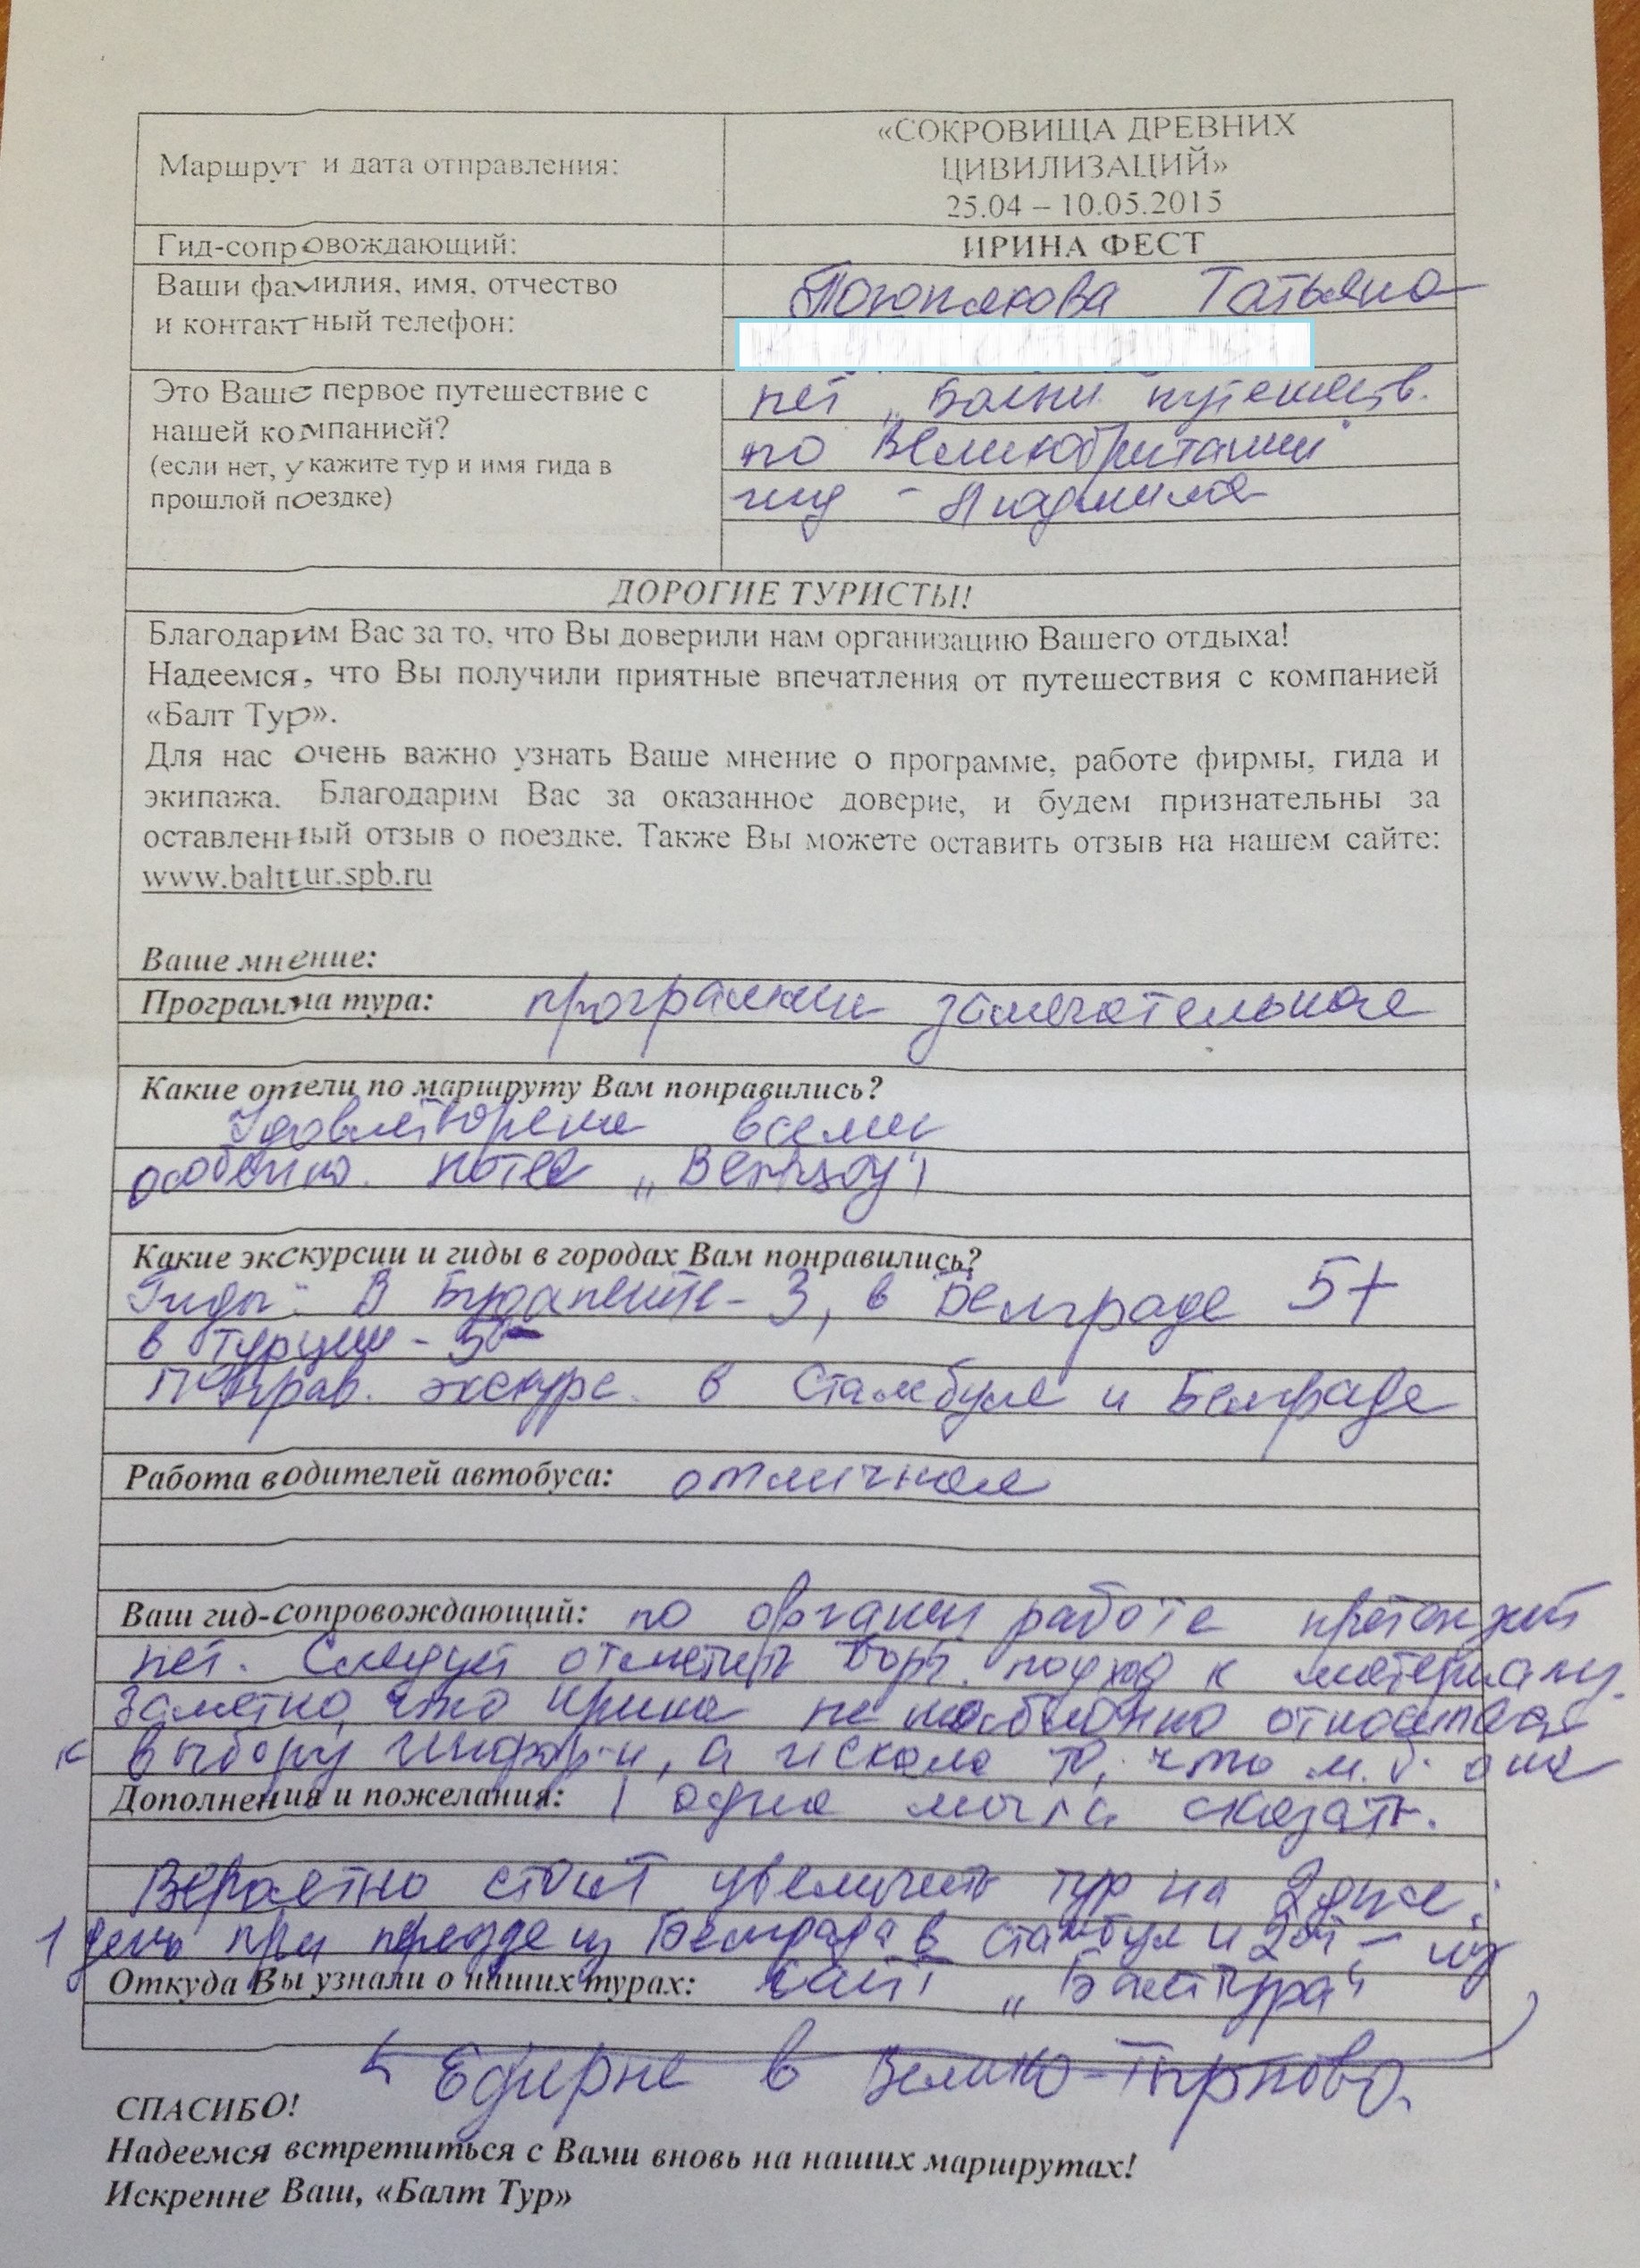 Маршрут и дата отправления:
«СОКРОВИЩА ДРЕВНИХ
ЦИВИЛИЗАЦИЙ»
25.04 – 10.05.2015
Гид-сопровождающий:
ИРИНА ФЕСТ
Ваши фамилия, имя, отчество
и контактный телефон:
Татьяна
Это Ваше первое путешествие с
нашей компанией?
(если нет, укажите тур и имя гида в
прошлой поездке)
нет „ путешеств.
по Великобритании"
гид - Людмила
ДОРОГИЕ ТУРИСТЫ!
Благодарим Вас за то, что Вы доверили нам организацию Вашего отдыха!
Надеемся, что Вы получили приятные впечатления от путешествия с компанией
«Балт Тур».
Для нас очень важно узнать Ваше мнение о программе, работе фирмы, гида и
экипажа. Благодарим Вас за оказанное доверие, и будем признательны за
оставленный отзыв о поездке. Также Вы можете оставить отзыв на нашем сайте:
www.balttur.spb.ru
Ваше мнение:
Программа тура: программа замечательная
Какие отели по маршруту Вам понравились?
Удовлетворена всеми
особенно hotel
Какие экскурсии и гиды в городах Вам понравились?
Гиды: В Будапеште - 3, в Белграде 5+
в Турции -
Понрав. экскурс. в Стамбуле и Белграде
Работа водителей автобуса: отличная
Ваш гид-сопровождающий: по органи работе претензий
нет. Следует отметить твор. подход к материалу.
Заметно, что Ирина не шаблонно относилась
к выбору информ-и, а искала то, что м. б. она
Дополнения и пожелания: одна могла сказать.
Вероятно стоит увеличить тур на 2 дня:
1 день при переезде из Белграда в Стамбул и 2ой – из
Откуда Вы узнали о наших турах: сайт „Балттура"
Едирне в Велико-Тырново.
СПАСИБО!
Надеемся встретиться с Вами вновь на наших маршрутах!
Искренне Ваш, «Балт Тур»